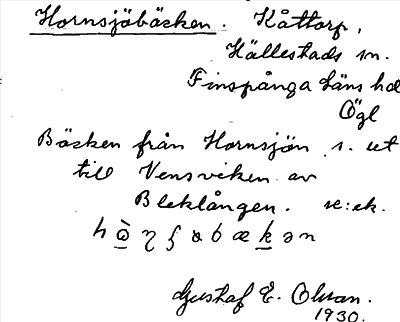 Hornsjöbäcken. Kåttorp,
Hällestads sn.
Finspånga läns hd
Ögl
Bäcken från Hornsjön s. ut
till Vensviken av
Bleklången. se: ek.
Gustaf E. Olsson.
1930.